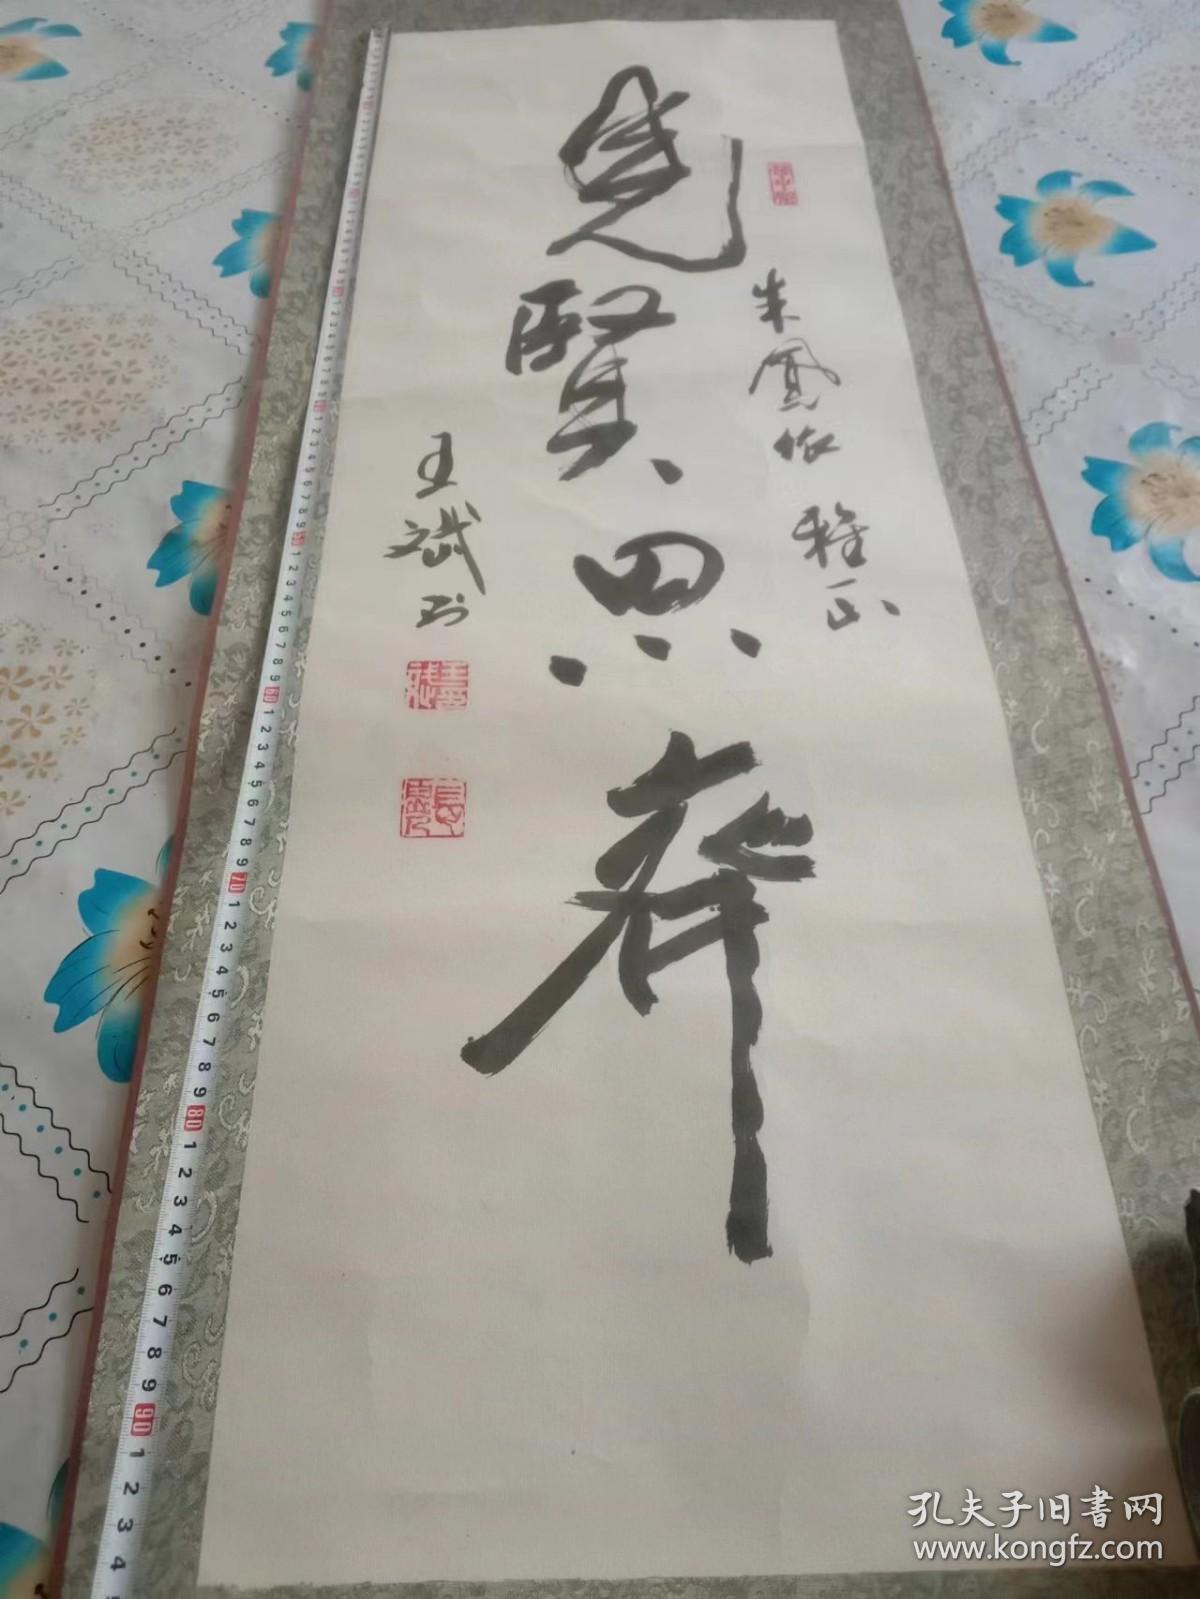 朱鳳依 雅正
見賢思齊
王斌书
孔夫子旧書网
www.kongfz.com